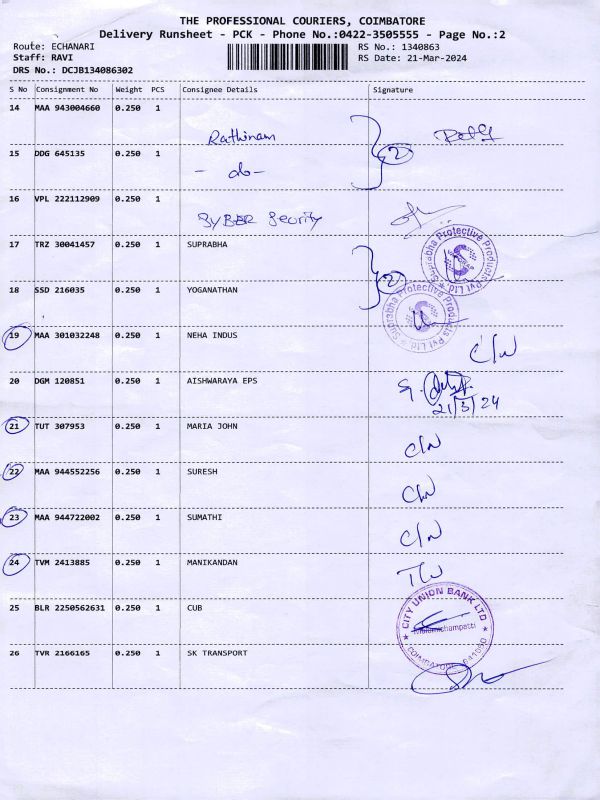 THE PROFESSIONAL COURIERS, COIMBATORE
Delivery Runsheet - PCK - Phone No.:0422-3505555 - Page No.:2
Route: ECHANARI
RS No.: 1340863
Staff: RAVI
RS Date: 21-Mar-2024
DRS No.: DCJB134086302
S No Consignment No Weight PCS Consignee Details Signature
14 MAA 943004660 0.250 1
Rathinam
2
15 DDG 645135 0.250 1
- do -
16 VPL 222112909 0.250 1
SyBER Security
17 TRZ 30041457 0.250 1 SUPRABHA
Suprabha Protective Products Pvt Ltd
2
18 SSD 216035 0.250 1 YOGANATHAN
Suprabha Protective Products Pvt Ltd
19 MAA 301032248 0.250 1 NEHA INDUS
C/N
20 DGM 120851 0.250 1 AISHWARAYA EPS
21/3/24
21 TUT 307953 0.250 1 MARIA JOHN
C/N
22 MAA 944552256 0.250 1 SURESH
C/N
23 MAA 944722002 0.250 1 SUMATHI
C/N
24 TVM 2413885 0.250 1 MANIKANDAN
25 BLR 2250562631 0.250 1 CUB
CITY UNION BANK LTD
COIMBATORE
26 TVR 2166165 0.250 1 SK TRANSPORT